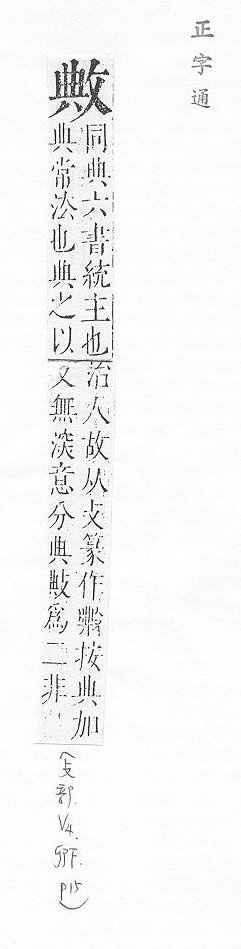 正字通
敟
同典六書統主也
典常法也典之以
治人故从攴篆作按典加
攴無深意分典敟為二非
(攴部.
V4.
卯下.
P15)